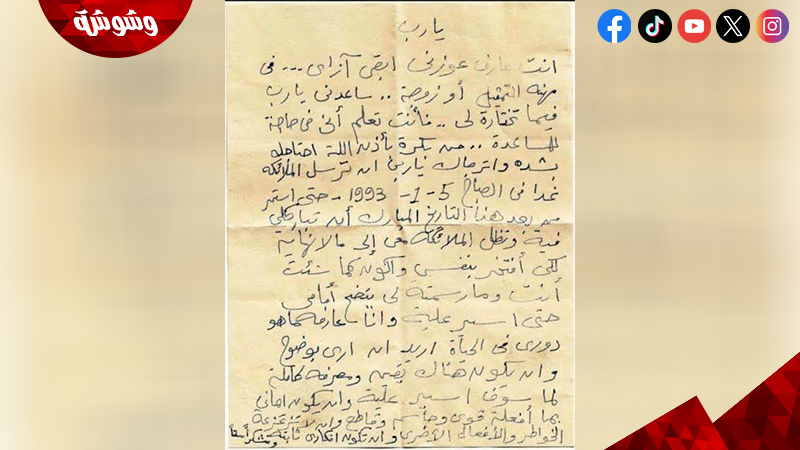 وشوشة
يارب
انت عارف عوزنى ابقى آزاى ... فى
مهنة التمثيل أو زوجة .. ساعدنى يارب
فيما تختارة لى .. فأنت تعلم أنى فى حاجة
للمساعدة .. من بكرة بأذن اللة احتاجك
بشده واترجاك يارب ان ترسل الملائكه
غدا فى الصباح 5-1-1993 - حتى استمر
من بعد هذا التاريخ المبارك أن تباركلى
فية وتظل الملائكة معى إلى مالانهاية
لكى أفتخر بنفسى وأكون كما شئت
أنت وما رسمتة لى يتضح أمامى
حتى اسير علية وانا عارفه ما هو
دورى فى الحياة اريد ان ارى بوضوح
وان يكون هناك يقين ومعرفه كاملة
لما سوف اسير علية وان يكون ايمانى
بما أفعلة قوى وحاسم وقاطع وان لا تزعزعة
الخواطر والأفعال الأخرى وان تكون افكارى ثابتة